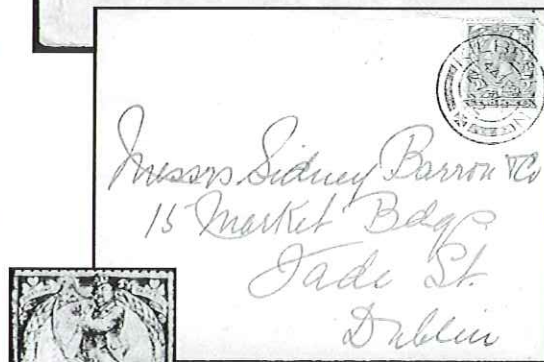 Messrs Sidney Barron & Co
15 Market Bdgs
Jade St.
Dublin